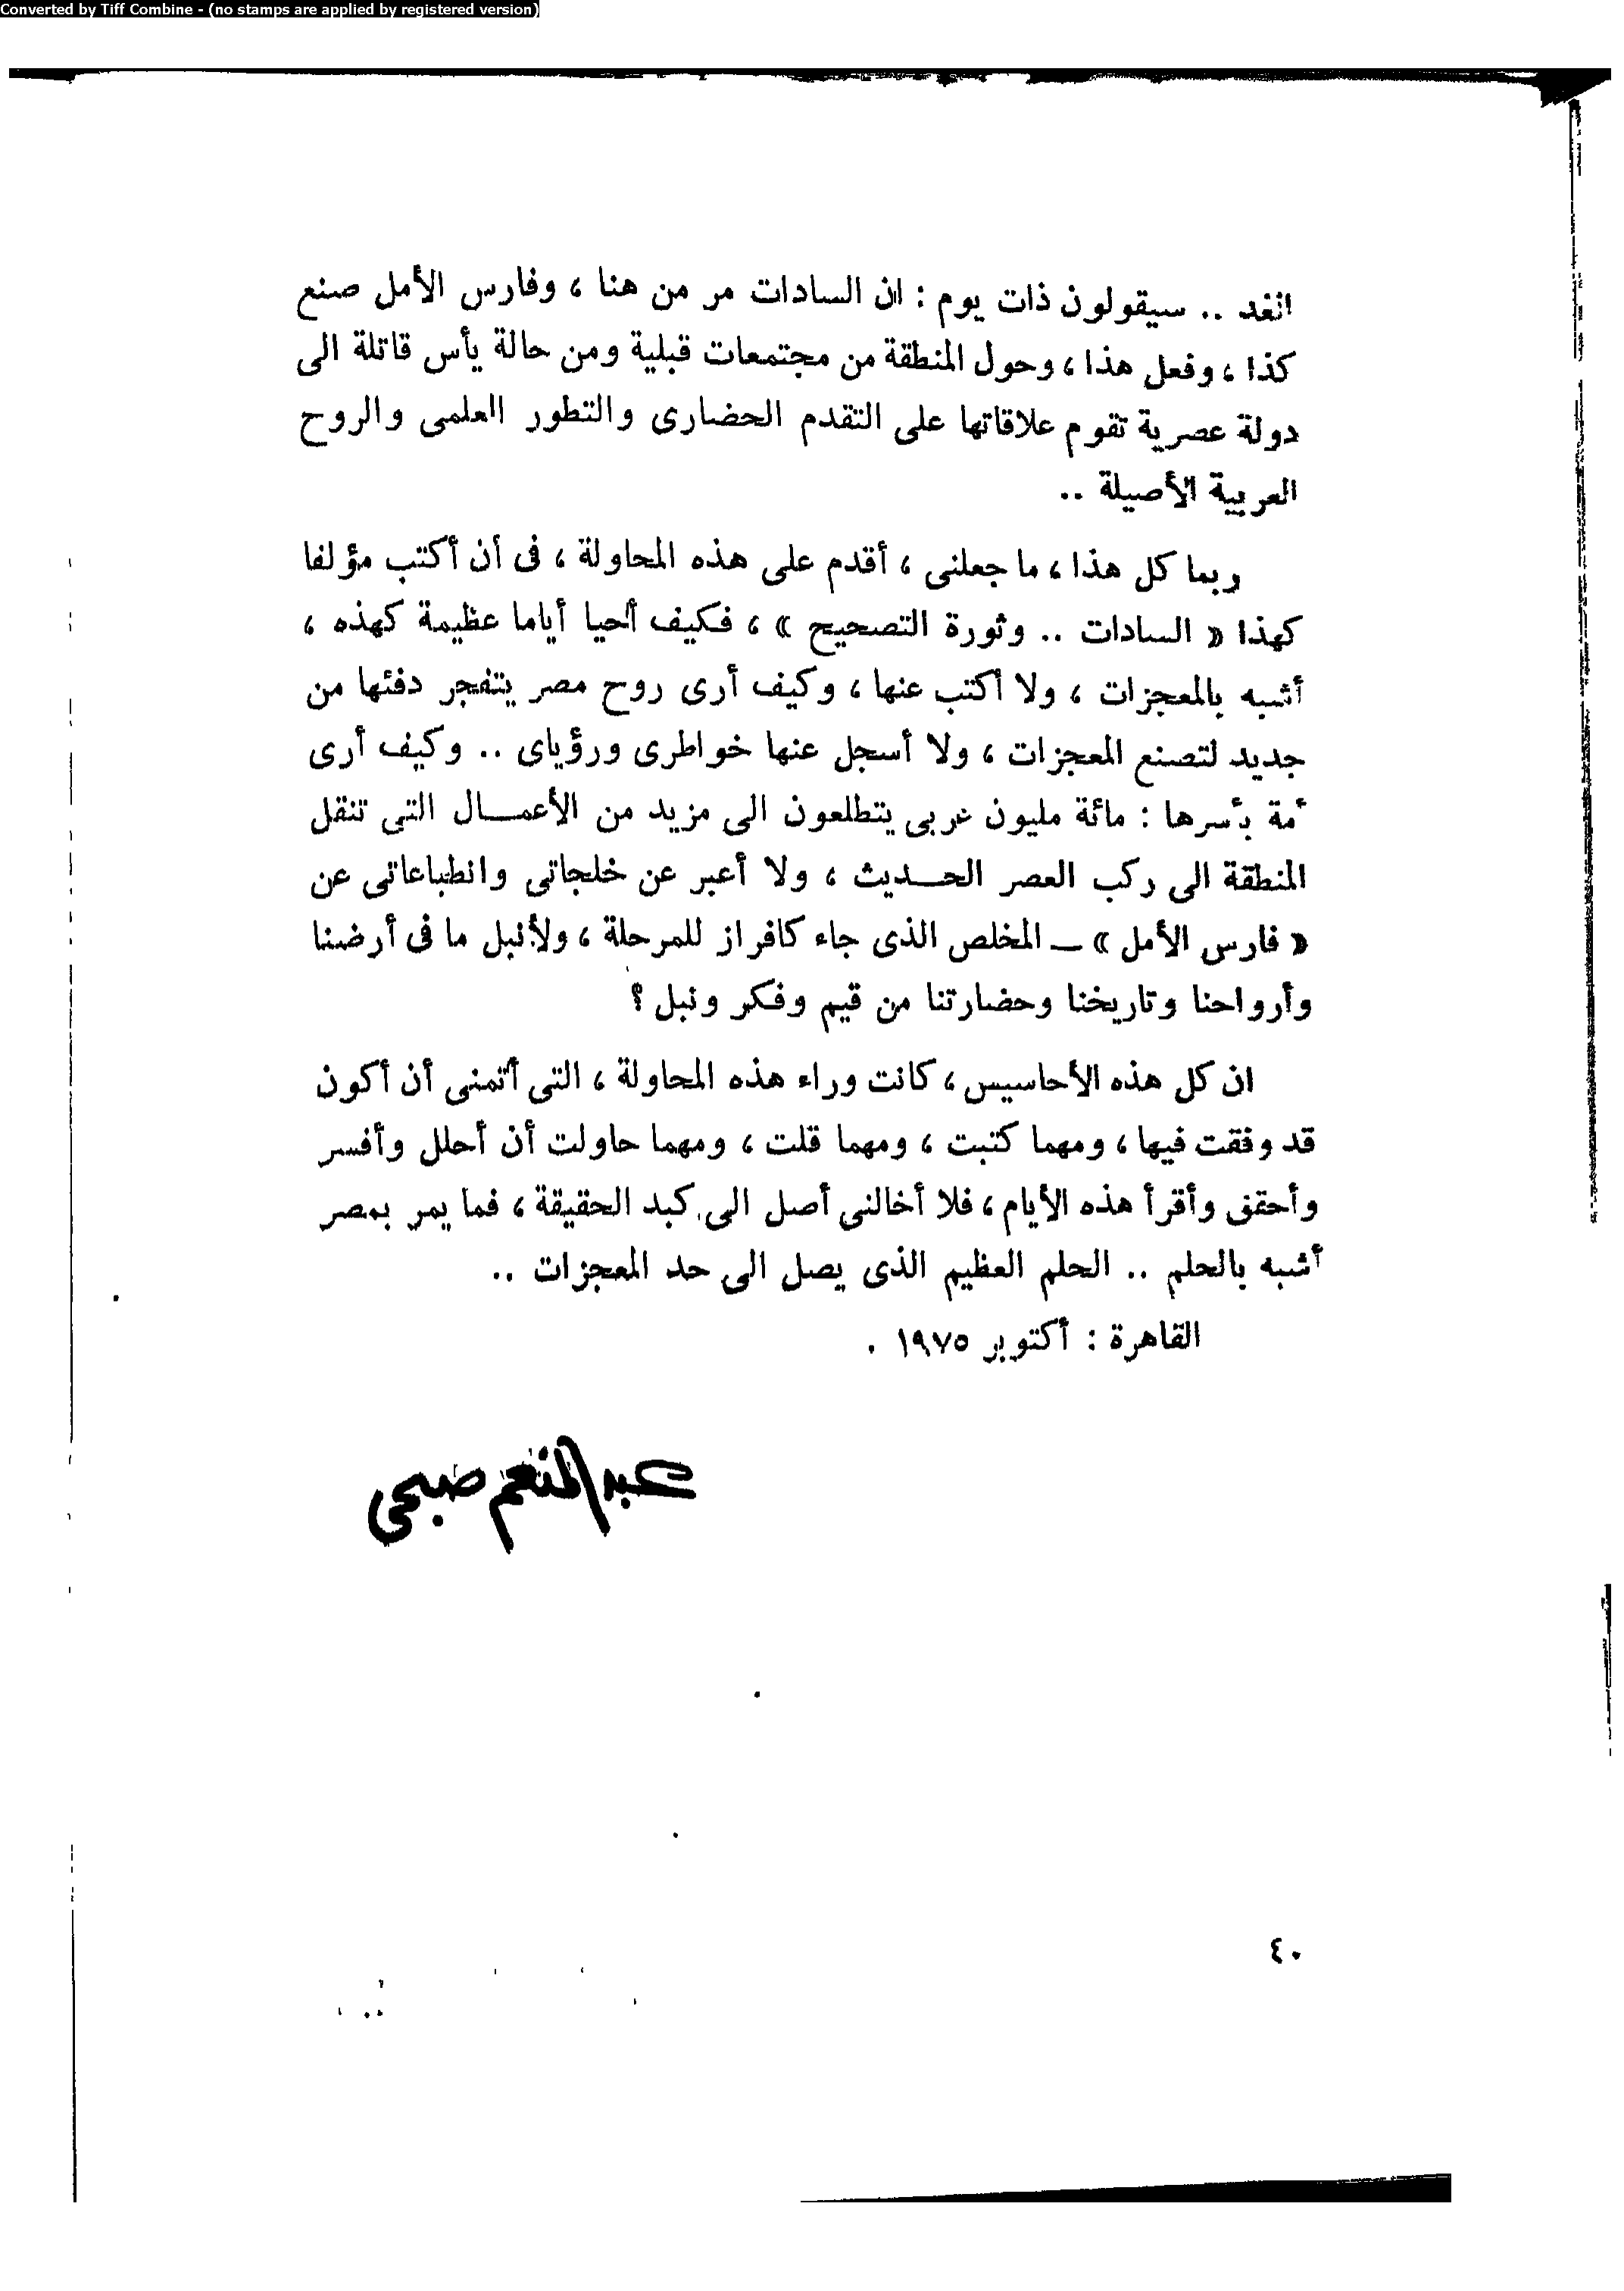 Converted by Tiff Combine - (no stamps are applied by registered version)
الغد .. سيقولون ذات يوم : ان السادات مر من هنا ، وفارس الأمل صنع
كذا ، وفعل هذا ، وحول المنطقة من مجتمعات قبلية ومن حالة يأس قاتلة الى
دولة عصرية تقوم علاقاتها على التقدم الحضارى والتطور العلمى والروح
العربية الأصيلة ..
ربما كل هذا ، ما جعلنى ، أقدم على هذه المحاولة ، فى أن أكتب مؤلفا
كهذا « السادات .. وثورة التصحيح » ، فكيف أحيا أياما عظيمة كهذه ،
أشبه بالمعجزات ، ولا أكتب عنها ، وكيف أرى روح مصر يتفجر دفئها من
جديد لتصنع المعجزات ، ولا أسجل عنها خواطرى ورؤياى .. وكيف أرى
أمة بأسرها : مائة مليون عربى يتطلعون الى مزيد من الأعمــال التى تنقل
المنطقة الى ركب العصر الحــديث ، ولا أعبر عن خلجاتى وانطباعاتى عن
« فارس الأمل » ــ المخلص الذى جاء كافراز للمرحلة ، ولأنبل ما فى أرضنا
وأرواحنا وتاريخنا وحضارتنا من قيم وفكر ونبل ؟
ان كل هذه الأحاسيس ، كانت وراء هذه المحاولة ، التى أتمنى أن أكون
قد وفقت فيها ، ومهما كتبت ، ومهما قلت ، ومهما حاولت أن أحلل وأفسر
وأحقق وأقرأ هذه الأيام ، فلا أخالنى أصل الى كبد الحقيقة ، فما يمر بمصر
أشبه بالحلم .. الحلم العظيم الذى يصل الى حد المعجزات ..
القاهرة : أكتوبر ١٩٧٥ .
عبد المنعم صبحى
٤٠